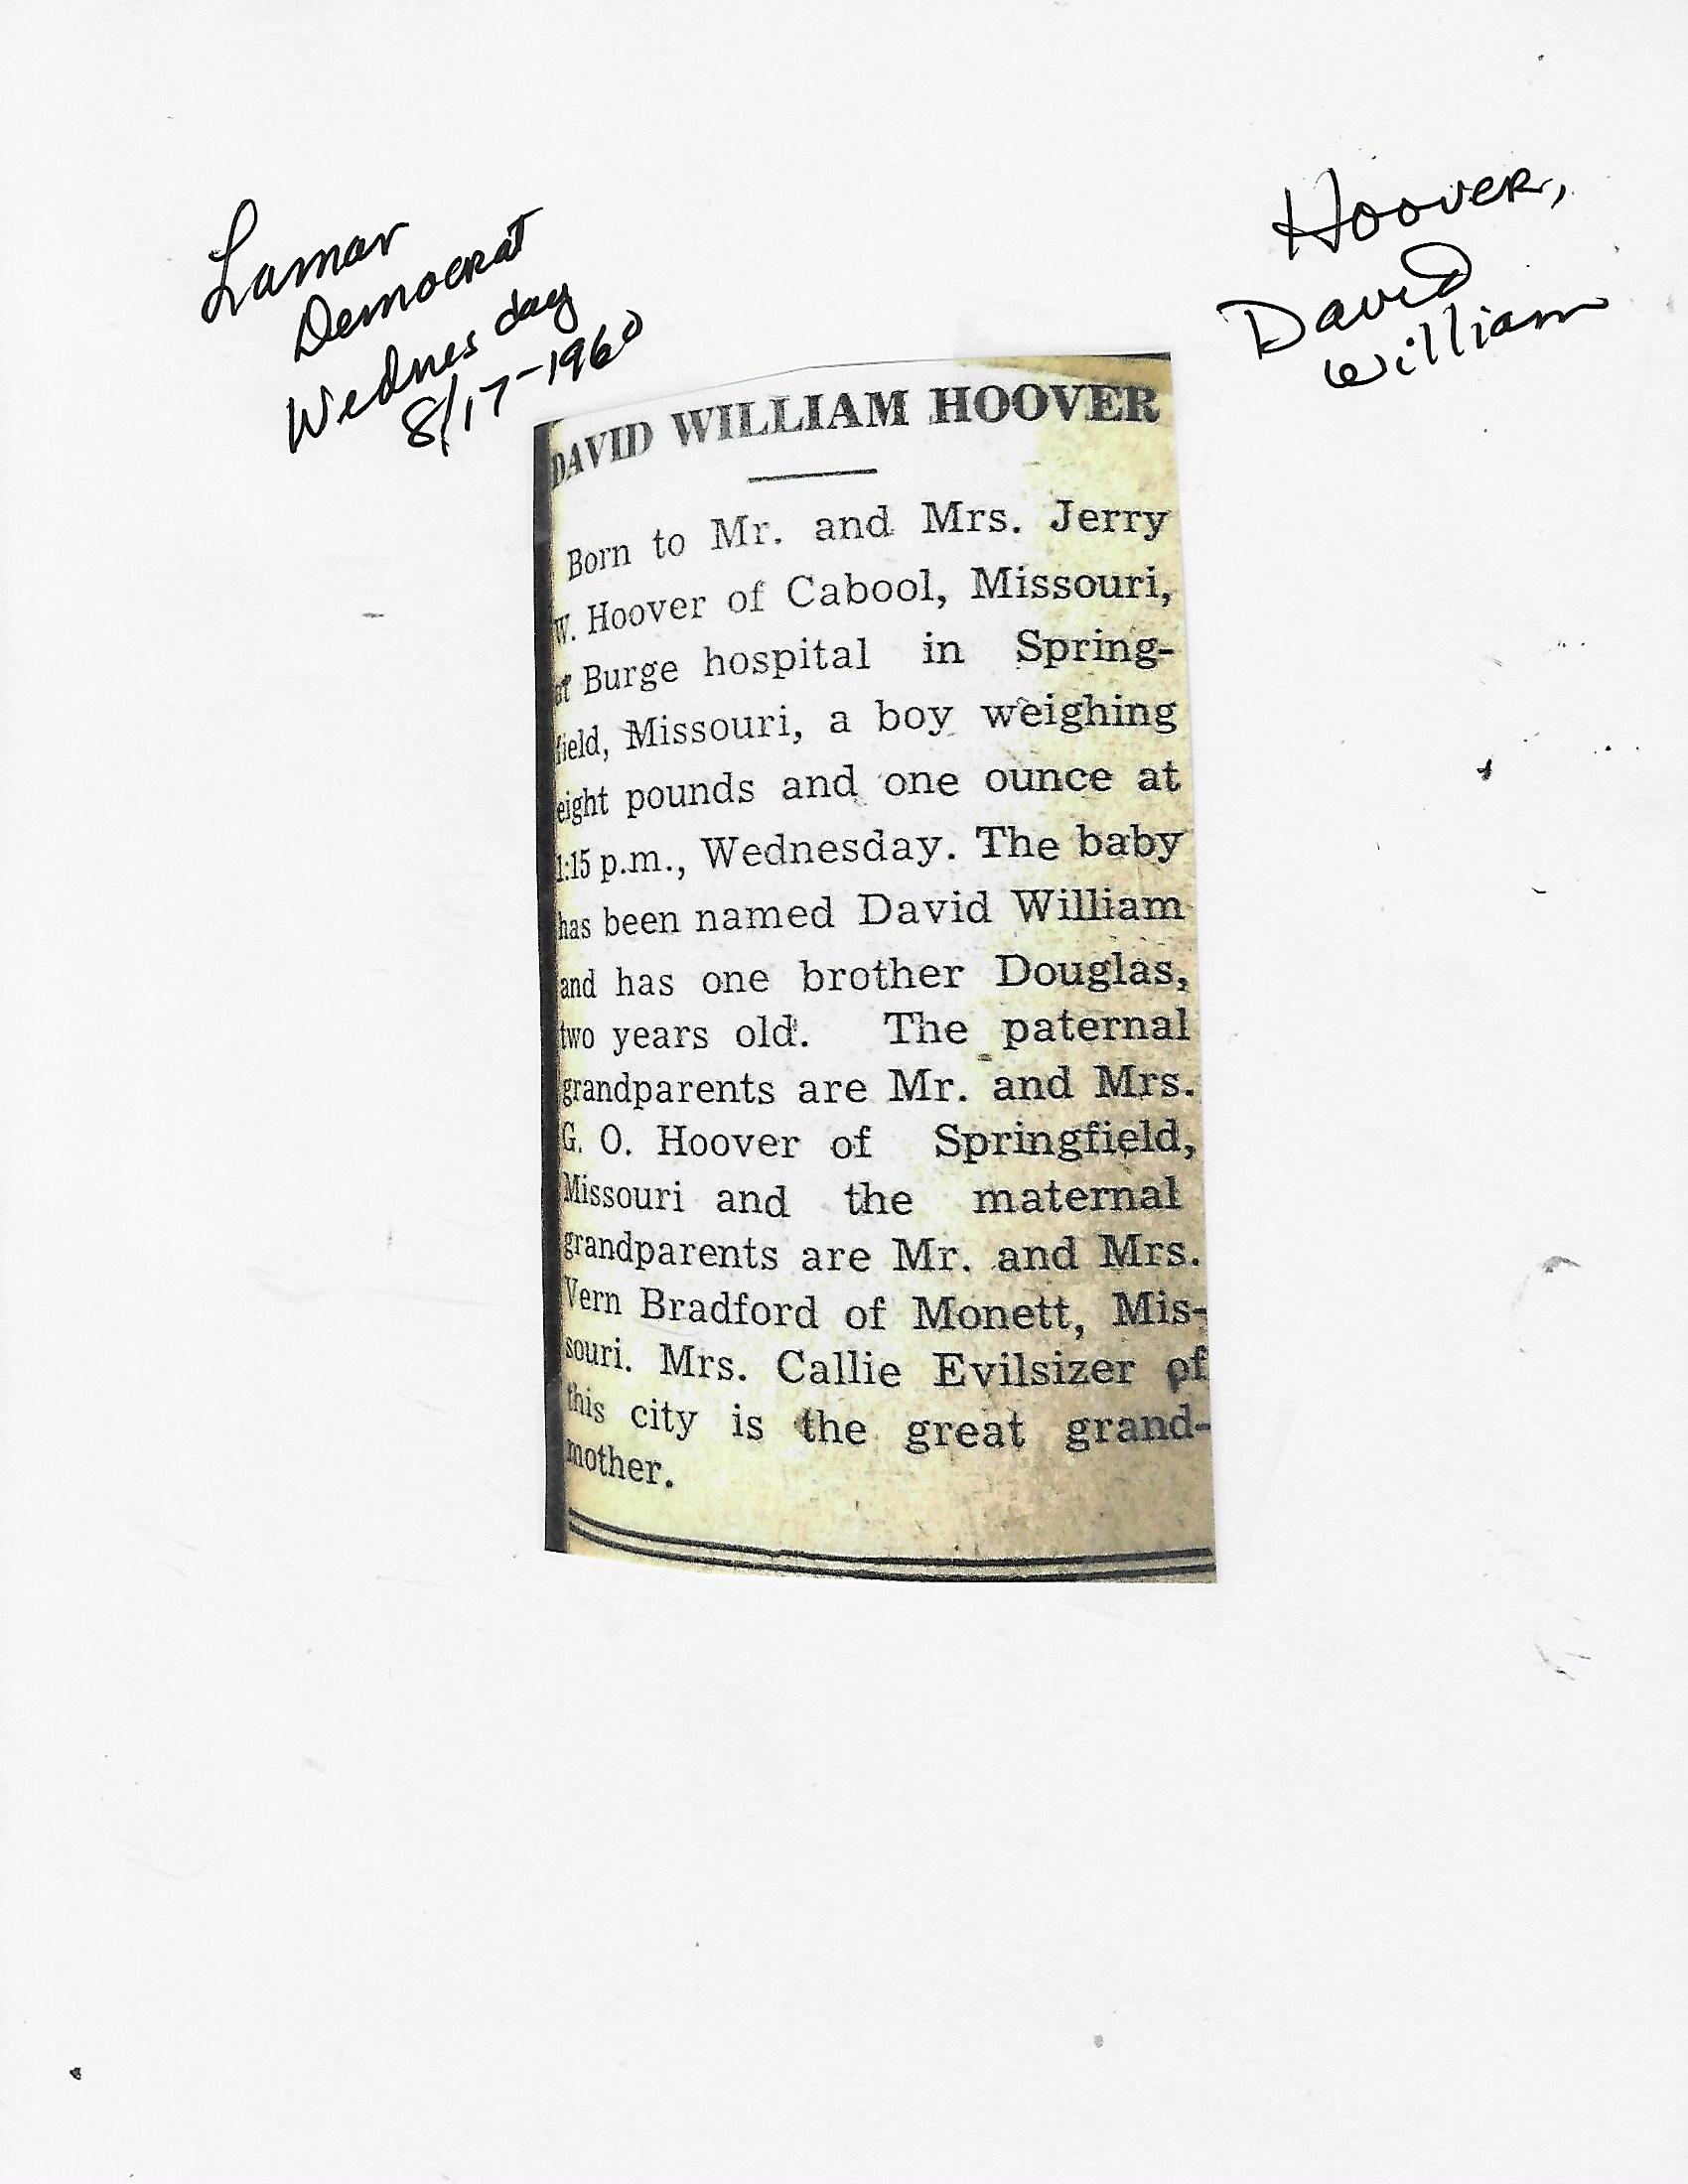 Lamar
Democrat
Wednesday
8/17-1960
Hoover,
David
William
DAVID WILLIAM HOOVER
Born to Mr. and Mrs. Jerry
W. Hoover of Cabool, Missouri,
at Burge hospital in Spring-
field, Missouri, a boy weighing
eight pounds and one ounce at
1:15 p.m., Wednesday. The baby
has been named David William
and has one brother Douglas,
two years old. The paternal
grandparents are Mr. and Mrs.
G. O. Hoover of Springfield,
Missouri and the maternal
grandparents are Mr. and Mrs.
Vern Bradford of Monett, Mis-
souri. Mrs. Callie Evilsizer of
this city is the great grand-
mother.